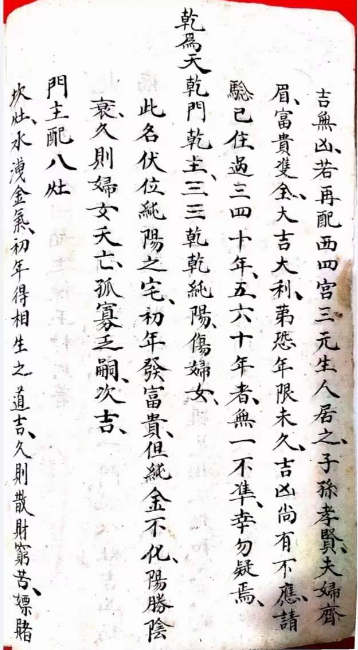 吉無凶、若再配西四宮三元生人居之、子孫孝賢、夫婦齊
眉、富貴雙全、大吉大利、弟恐年限未久、吉凶尚有不應、請
驗已住過三四十年、五六十年者、無一不準、幸勿疑焉、
乾爲天乾門乾主、三三乾乾純陽、傷婦女、
此名伏位純陽之宅、初年發富貴、但純金不化、陽勝陰
衰、久則婦女夭亡、孤寡乏嗣、次吉、
門主配八灶
坎灶、水洩金氣、初年得相生之道吉、久則散財窮苦、嫖賭